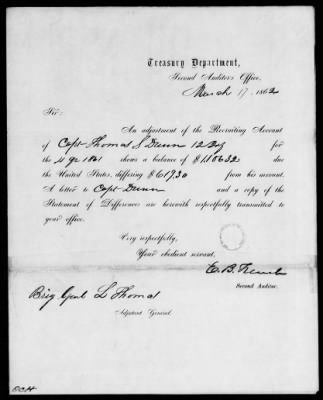 Treasury Department,
Second Auditor's Office,
March 17, 1862
Sir:
An adjustment of the Recruiting Account
of Capt Thomas S Dunn 12 Reg for
the 4 qr 1861 shows a balance of $1106 32 due
the United States, differing $617 30 from his account.
A letter to Capt Dunn and a copy of the
Statement of Differences are herewith respectfully transmitted to
your office.
Very respectfully,
Your obedient servant,
E. B. French
Second Auditor.
Brig Genl L Thomas
Adjutant General.